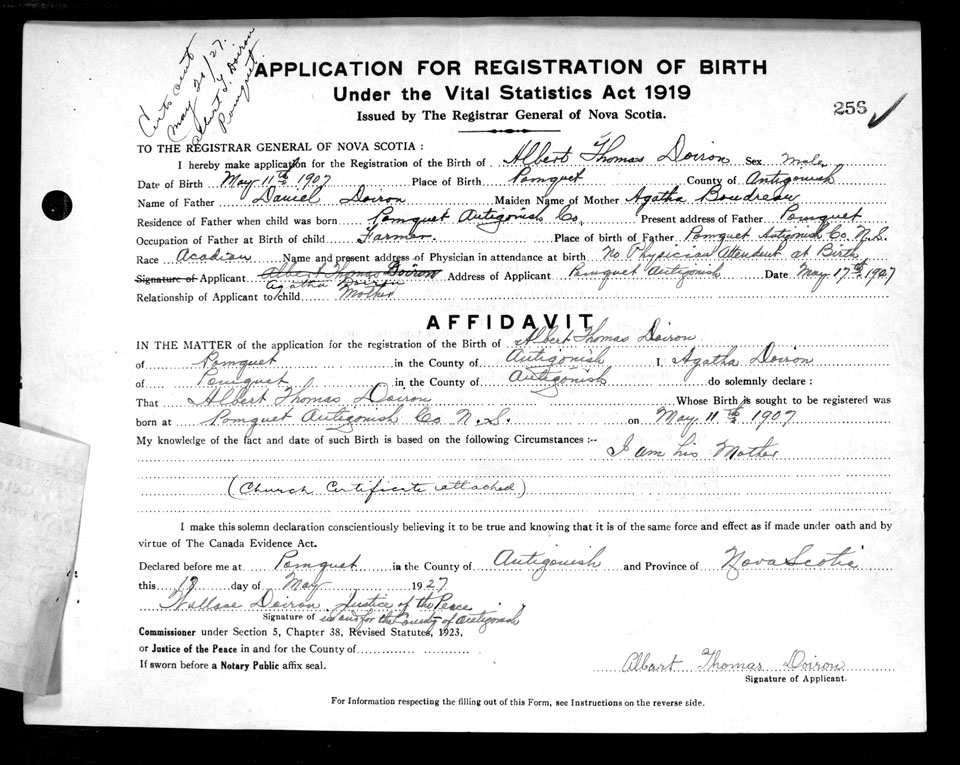 Certs sent
May 20/27.
Albert T. Doiron
Pomquet.
APPLICATION FOR REGISTRATION OF BIRTH
Under the Vital Statistics Act 1919
Issued by The Registrar General of Nova Scotia.
256
TO THE REGISTRAR GENERAL OF NOVA SCOTIA :
I hereby make application for the Registration of the Birth of Albert Thomas Doiron Sex Male
Date of Birth May 11th 1907 Place of Birth Pomquet County of Antigonish
Name of Father Daniel Doiron Maiden Name of Mother Agatha Boudreau
Residence of Father when child was born Pomquet Antigonish Co. Present address of Father Pomquet
Occupation of Father at Birth of child Farmer. Place of birth of Father Pomquet Antigonish Co. N.S.
Race Acadian Name and present address of Physician in attendance at birth No Physician Attendent at Birth
Signature of Applicant Albert Thomas Doiron Address of Applicant Pomquet Antigonish Date May 17th 1927
Agatha Doiron
Relationship of Applicant to child Mother
AFFIDAVIT
IN THE MATTER of the application for the registration of the Birth of Albert Thomas Doiron
of Pomquet in the County of Antigonish I, Agatha Doiron
of Pomquet in the County of Antigonish do solemnly declare :
That Albert Thomas Doiron Whose Birth is sought to be registered was
born at Pomquet Antigonish Co N.S. on May 11th 1907
My knowledge of the fact and date of such Birth is based on the following Circumstances :--
I am his Mother
(Church Certificate attached)
I make this solemn declaration conscientiously believing it to be true and knowing that it is of the same force and effect as if made under oath and by
virtue of The Canada Evidence Act.
Declared before me at Pomquet in the County of Antigonish and Province of Nova Scotia
this 18 day of May 1927
Wallace Doiron Justice of the Peace
Signature of in and for the County of Antigonish
Commissioner under Section 5, Chapter 38, Revised Statutes, 1923,
or Justice of the Peace in and for the County of
If sworn before a Notary Public affix seal.
Albert Thomas Doiron
Signature of Applicant.
For Information respecting the filling out of this Form, see Instructions on the reverse side.